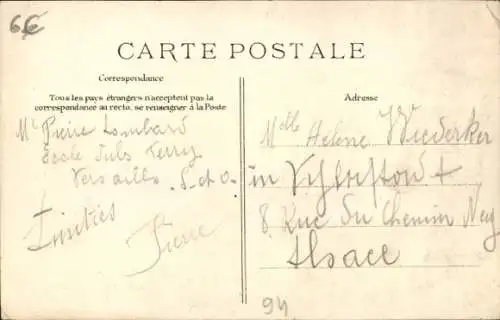 6€
CARTE POSTALE
Correspondance
Tous les pays étrangers n'acceptent pas la
correspondance au recto, se renseigner à la Poste
Adresse
Mr Pierre Lombard
École Jules Ferry
Versailles S-et-O.
Amitiés
Pierre
Melle Helene Wiederker
in
8. Rue du Chemin Neuf
Alsace
94